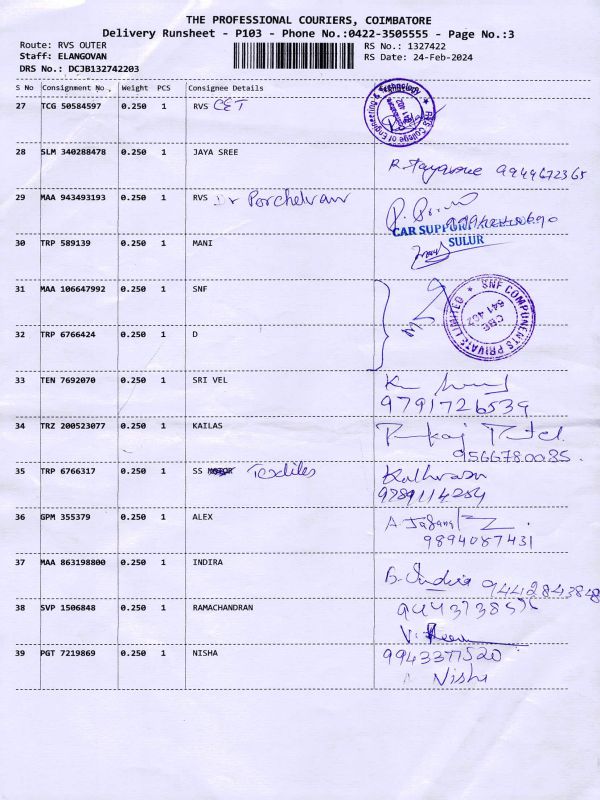 THE PROFESSIONAL COURIERS, COIMBATORE
Delivery Runsheet - P103 - Phone No.:0422-3505555 - Page No.:3
Route: RVS OUTER RS No.: 1327422
Staff: ELANGOVAN RS Date: 24-Feb-2024
DRS No.: DCJB132742203
S No Consignment No. Weight PCS Consignee Details
27 TCG 50584597 0.250 1 RVS CET
RVS College of Engineering & Technology
28 SLM 340288478 0.250 1 JAYA SREE
29 MAA 943493193 0.250 1 RVS Dr Porchelvan
CAR SUPPORT
SULUR
30 TRP 589139 0.250 1 MANI
31 MAA 106647992 0.250 1 SNF
SNF COMPONENTS PRIVATE LIMITED
CBE
641 402
32 TRP 6766424 0.250 1 D
33 TEN 7692070 0.250 1 SRI VEL
9791726539
34 TRZ 200523077 0.250 1 KAILAS
Pankaj Patel.
9566780085.
35 TRP 6766317 0.250 1 SS Textiles
9789114254
36 GPM 355379 0.250 1 ALEX
9894087431
37 MAA 863198800 0.250 1 INDIRA B. Indira 9442843848
38 SVP 1506848 0.250 1 RAMACHANDRAN
39 PGT 7219869 0.250 1 NISHA 9943377520
Nisha